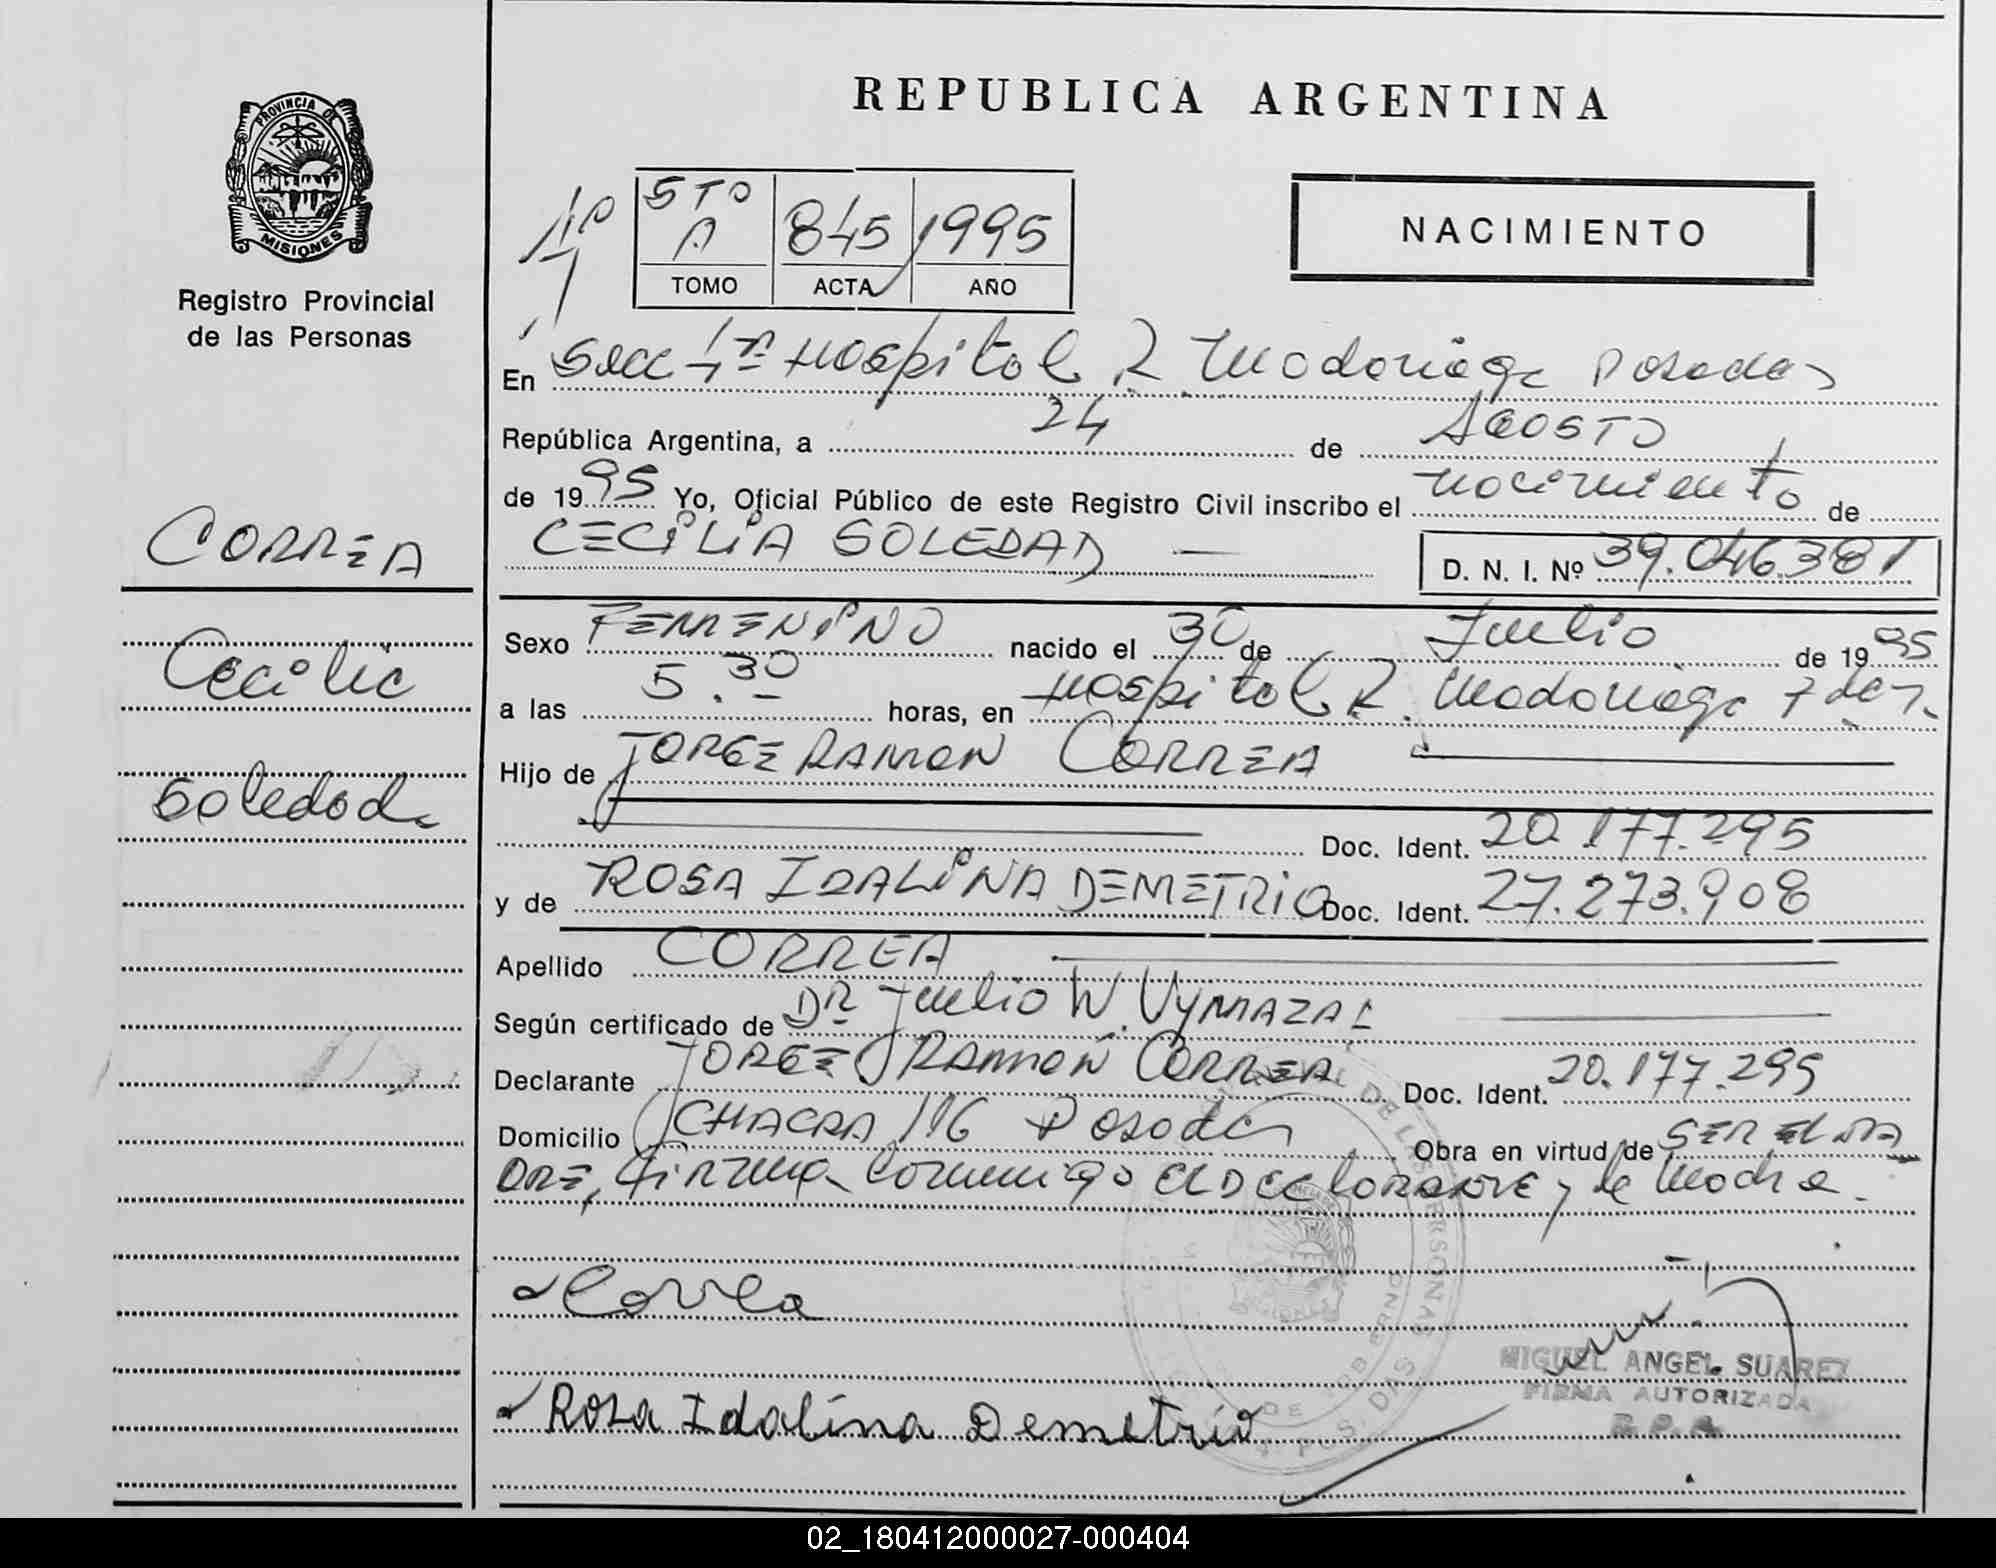 REPUBLICA ARGENTINA
PROVINCIA DE
MISIONES
Registro Provincial
de las Personas
5TO
A 845 1995
TOMO ACTA AÑO
NACIMIENTO
En Secc 1ra Hospital R. Madariaga Posadas
República Argentina, a 24 de AGOSTO
de 1995 Yo, Oficial Público de este Registro Civil inscribo el nacimiento de
CECILIA SOLEDAD D. N. I. Nº 39.046.381
CORREA
Cecilia
Soledad
Sexo FEMENINO nacido el 30 de Julio de 1995
a las 5.30 horas, en Hospital R. Madariaga
Hijo de JORGE RAMON CORREA
Doc. Ident. 20.177.295
y de ROSA IDALINA DEMETRIO Doc. Ident. 27.273.908
Apellido CORREA
Según certificado de DR Julio W. VYMAZAL
Declarante JORGE RAMON CORREA Doc. Ident. 20.177.295
Domicilio CHACRA 116 Posadas Obra en virtud de SER EL PA
DRE, firma conmigo el DECLARANTE y la Madre.
Correa
Rosa Idalina Demetrio
MIGUEL ANGEL SUAREZ
FIRMA AUTORIZADA
R.P.A.
02_180412000027-000404